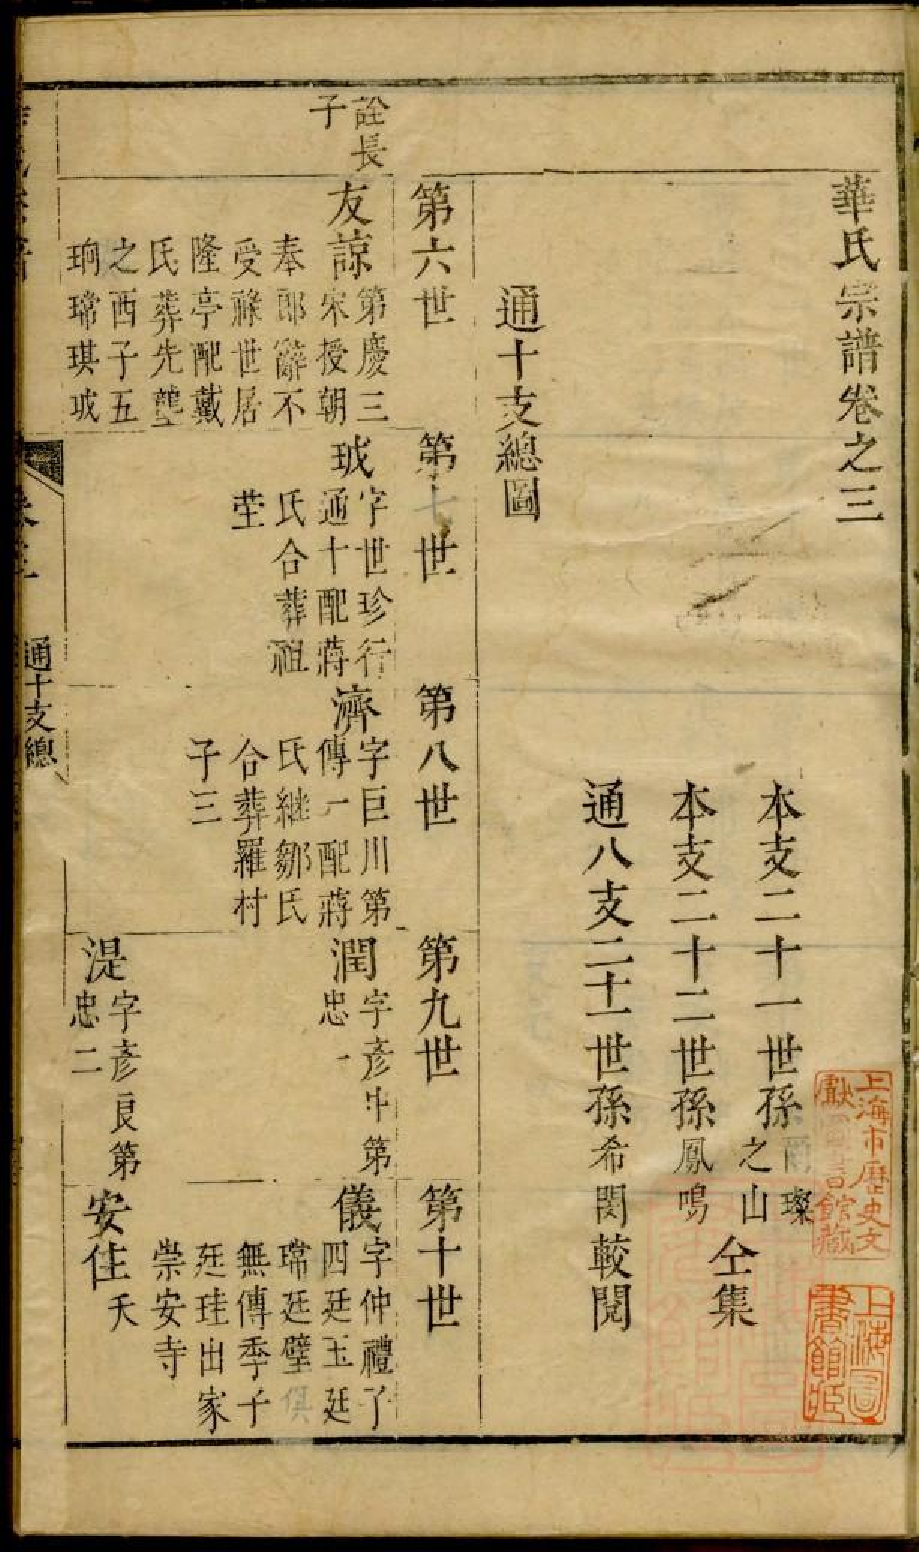 華氏宗譜卷之三
本支二十一世孫爾璨
之山
本支二十二世孫鳳鳴
仝集
通八支二十一世孫希閔較閱
通十支總圖
第六世
第七世
第八世
第九世
第十世
詮長
子
友諒
第慶三
宋授朝
奉郎辭不
受祿世居
隆亭配戴
氏葬先壟
之西子五
珦璹琪珹
珹
字世珍行
通十配蔣
氏合葬祖
塋
濟
字巨川第
傳一配蔣
氏繼鄒氏
合葬羅村
子三
潤
字彥中第
忠一
儀
字仲禮子
四廷玉廷
璹廷璧俱
無傳季子
廷珪出家
崇安寺
湜
字彥良第
忠二
安住
夭
通十支總
上海市歷史文
獻圖書館藏
上海圖
書館藏